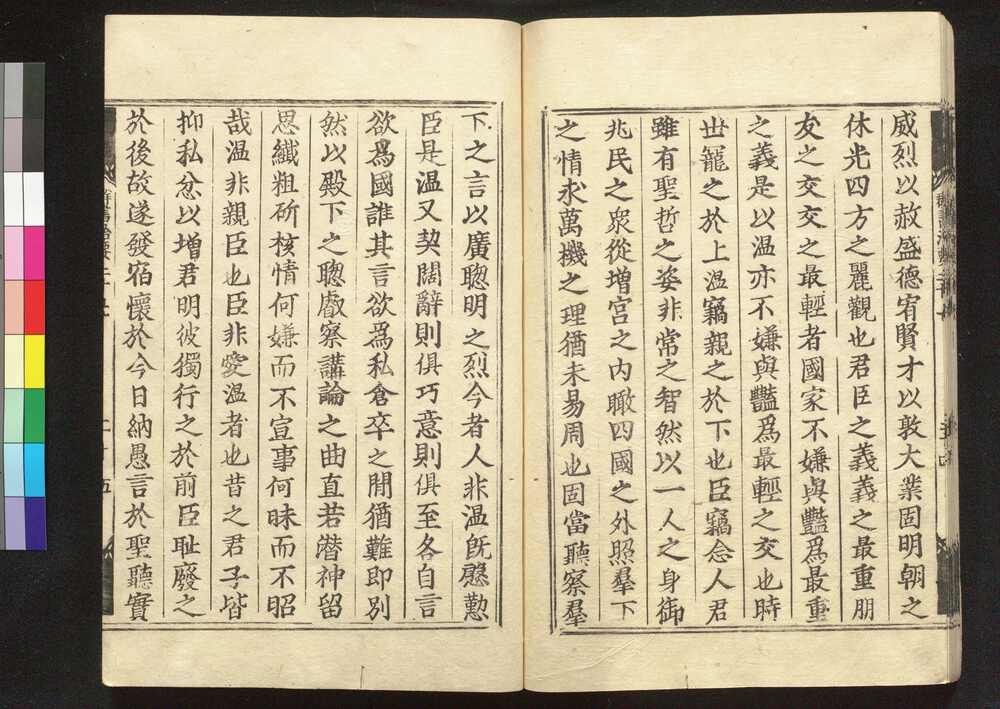 威烈以赦盛德宥賢才以敦大業固明朝之
休光四方之麗觀也君臣之義義之最重朋
友之交交之最輕者國家不嫌與豔爲最重
之義是以温亦不嫌與豔爲最輕之交也時
世寵之於上温竊親之於下也臣竊念人君
雖有聖哲之姿非常之智然以一人之身御
兆民之衆從增宮之内瞰四國之外照羣下
之情求萬機之理猶未易周也固當聽察羣
下之言以廣聰明之烈今者人非温旣慇懃
臣是温又契闊辭則俱巧意則俱至各自言
欲爲國誰其言欲爲私倉卒之閒猶難即別
然以殿下之聰叡察講論之曲直若潛神留
思纖粗研核情何嫌而不宣事何昧而不昭
哉温非親臣也臣非愛温者也昔之君子皆
抑私忿以增君明彼獨行之於前臣耻廢之
於後故遂發宿懷於今日納愚言於聖聽實